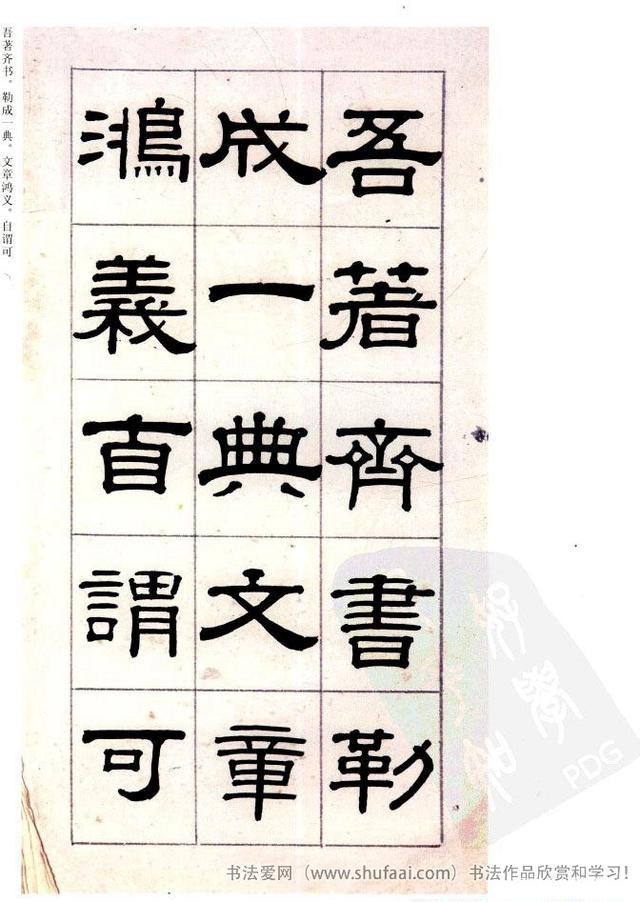 吾著齊書勒
成一典文章
鴻義自謂可
吾著齐书。勒成一典。文章鸿义。自谓可
PDG
书法爱网（www.shufaai.com）书法作品欣赏和学习!